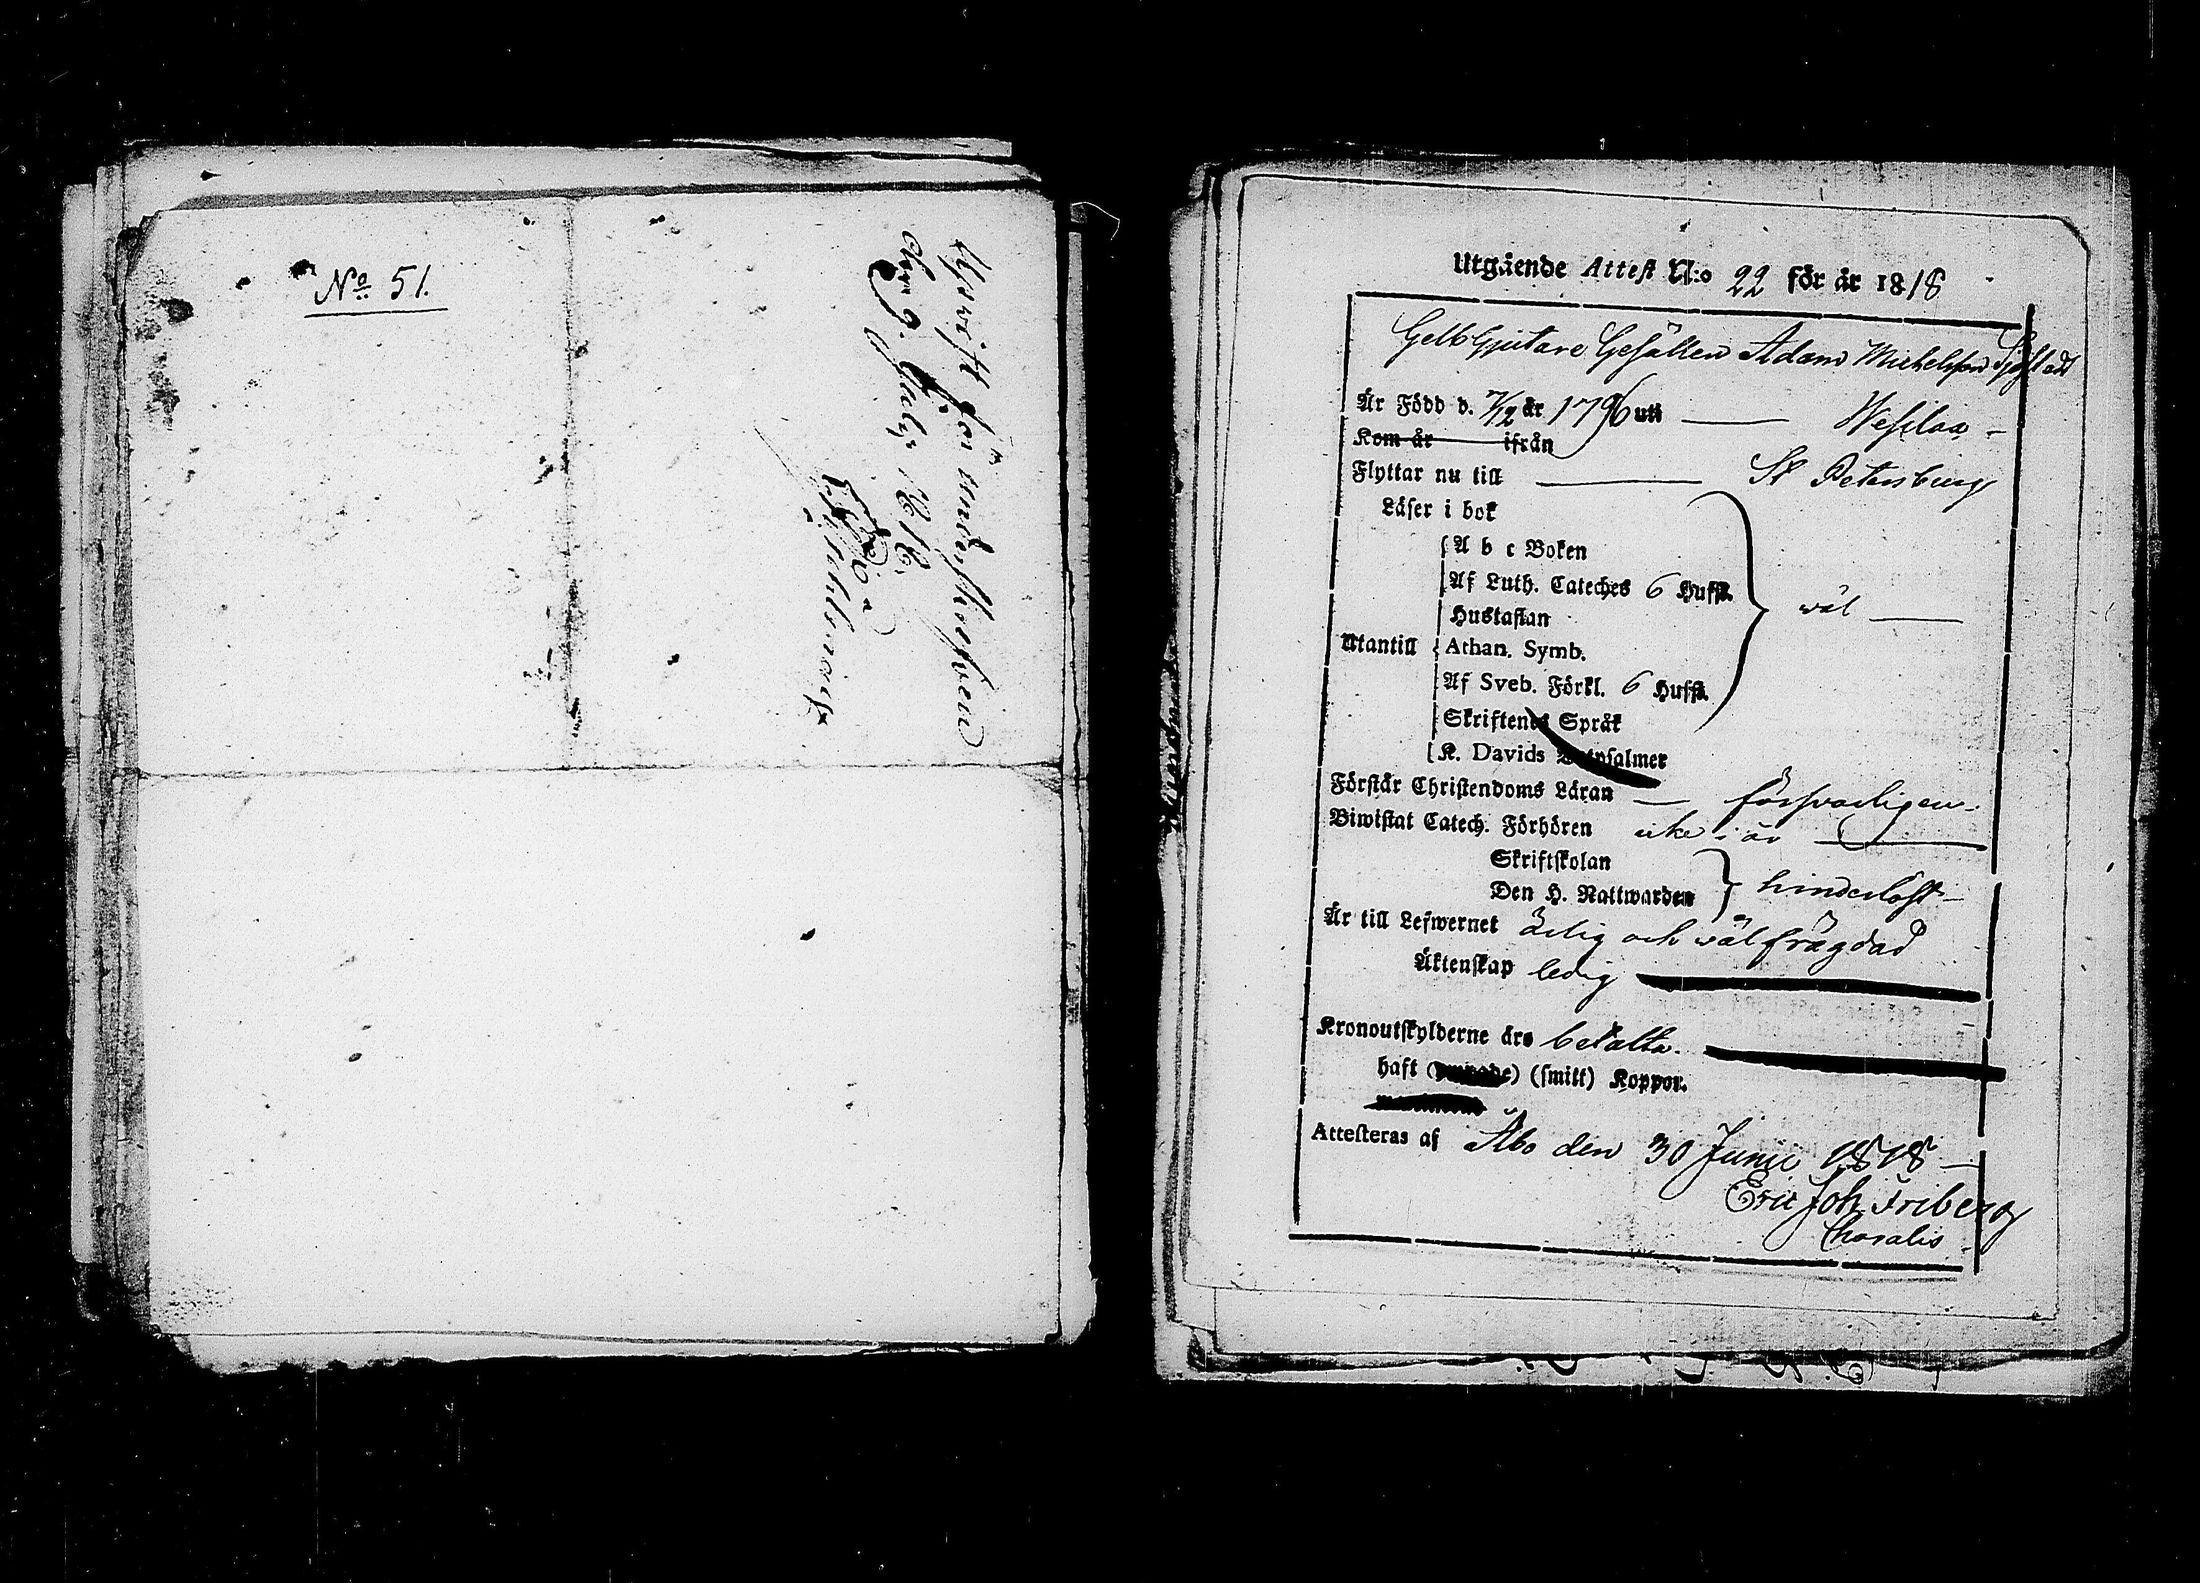 No 51.
Uppvist för underskrefven
den 9. July 1818.
Utgående Attest N:o 22 för år 1818
Gelbgjutare Gesällen Adam Michelsson
Är Född d. 7/12 år 1796 uti — Wesilax —
Kom år ifrån
Flyttar nu till — St Petersburg
Läser i bok
A b c Boken
Af Luth. Cateches 6 Hufst.
Hustaflan
wäl —
Utantill
Athan. Symb.
Af Sveb. Förkl. 6 Hufst.
Skriftenes Språk
K. Davids Botpsalmer
Förstår Christendoms Läran — försvarligen.
Biwistat Catech. Förhören icke i år —
Skriftskolan
Den H. Nattwarden
hinderlöst —
Är till Lefwernet ärlig och wälfrägdad
Äktenskap ledig
Kronoutskylderne äro betalta.
haft () (smitt) Koppor.
Attesteras af Åbo den 30 Junii 1818 —
Eric Joh Friberg